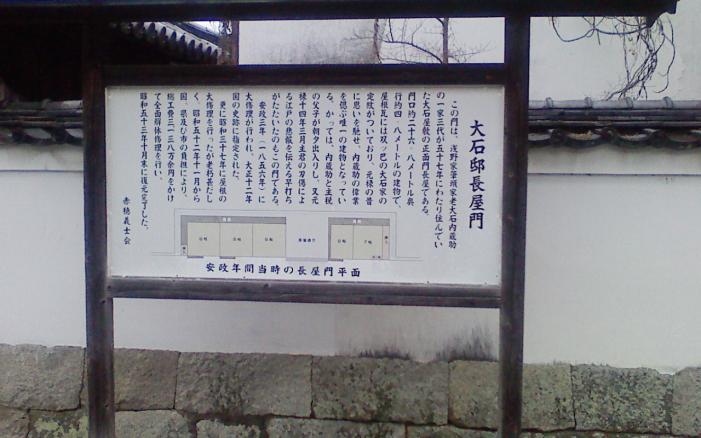 大石邸長屋門
この門は、浅野家筆頭家老大石内蔵助
の一家三代が五十七年にわたり住んでい
た大石屋敷の正面門長屋である。
門口約二十六・八メートル奥
行約四・八メートルの建物で、
屋根瓦には双ツ巴の大石家の
定紋がついており、元禄の昔
に思いを馳せ、内蔵助の偉業
を偲ぶ唯一の建物となってい
る。かっては、内蔵助と主税
の父子が朝夕出入りし、又元
禄十四年三月主君の刃傷によ
る江戸の悲報を伝える早打ち
がたたいたのもこの門である。
安政三年(一八五六年)に
大修理が行われ、大正十二年
国の史跡に指定された。
更に昭和三十七年に屋根の
大修理を行ったが老朽甚だし
く、昭和五十二年十一月から
国、県及び市の負担により、
総工費三一三八万余円をかけ
て全面解体修理を行い、
昭和五十三年十月末に復元完了した。
赤穂義士会
安政年間当時の長屋門平面